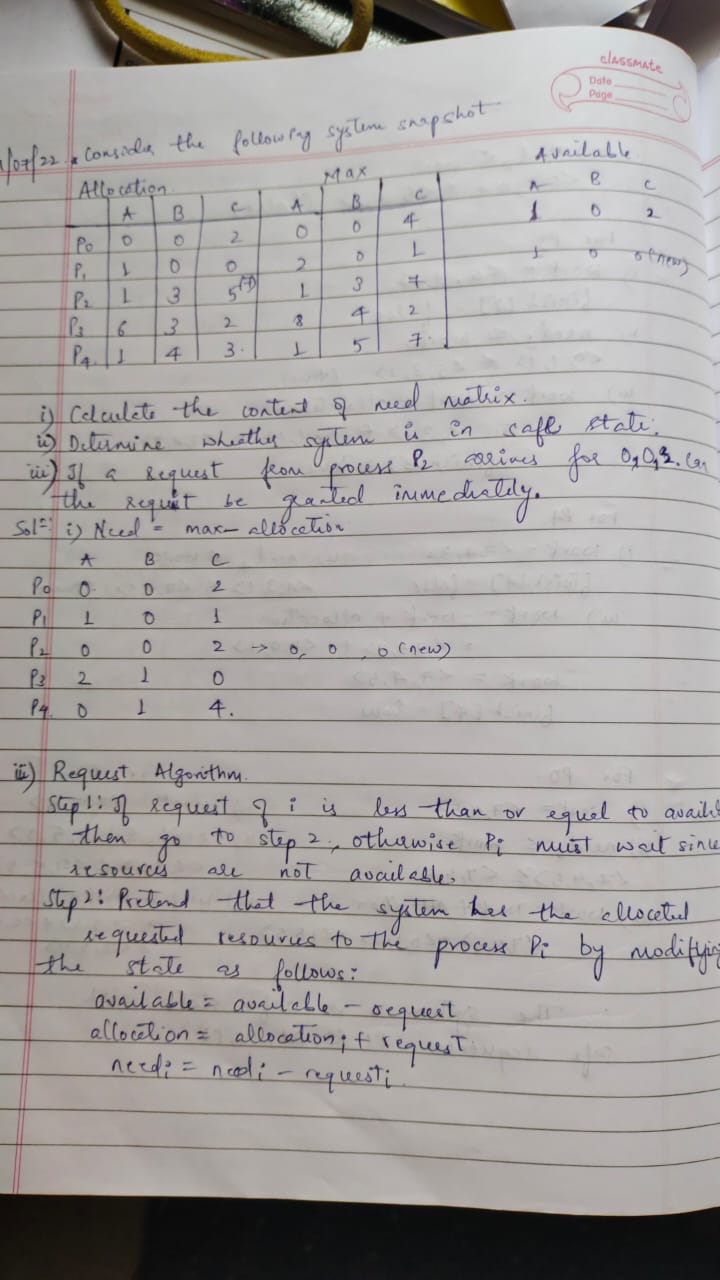 classmate
Date
Page
/07/22 * Consider the following system snapshot
Allocation Max Available
A B C A B C A B C
P0 0 0 2 0 0 4 1 0 2
P1 1 0 0 2 0 1 1 0 0 (new)
P2 1 3 5(7) 1 3 7
P3 6 3 2 8 4 2
P4 1 4 3 1 5 7
i) Calculate the content of need matrix.
ii) Determine wheather system is in safe state.
iii) If a request from process P2 arrives for 0,0,2. Can
the request be granted immediately.
Solⁿ: i) Need = max - allocation
A B C
P0 0 0 2
P1 1 0 1
P2 0 0 2 → 0, 0, 0 (new)
P3 2 1 0
P4 0 1 4.
iii) Request Algorithm.
Step 1: If request of i is less than or equal to
then go to step 2, otherwise Pi must wait since
resources are not available.
Step 2: Pretend that the system has the allocated
requested resources to the process Pi by
the state as follows:
available = available - request
allocation = allocation i + request
needi = needi - requesti.